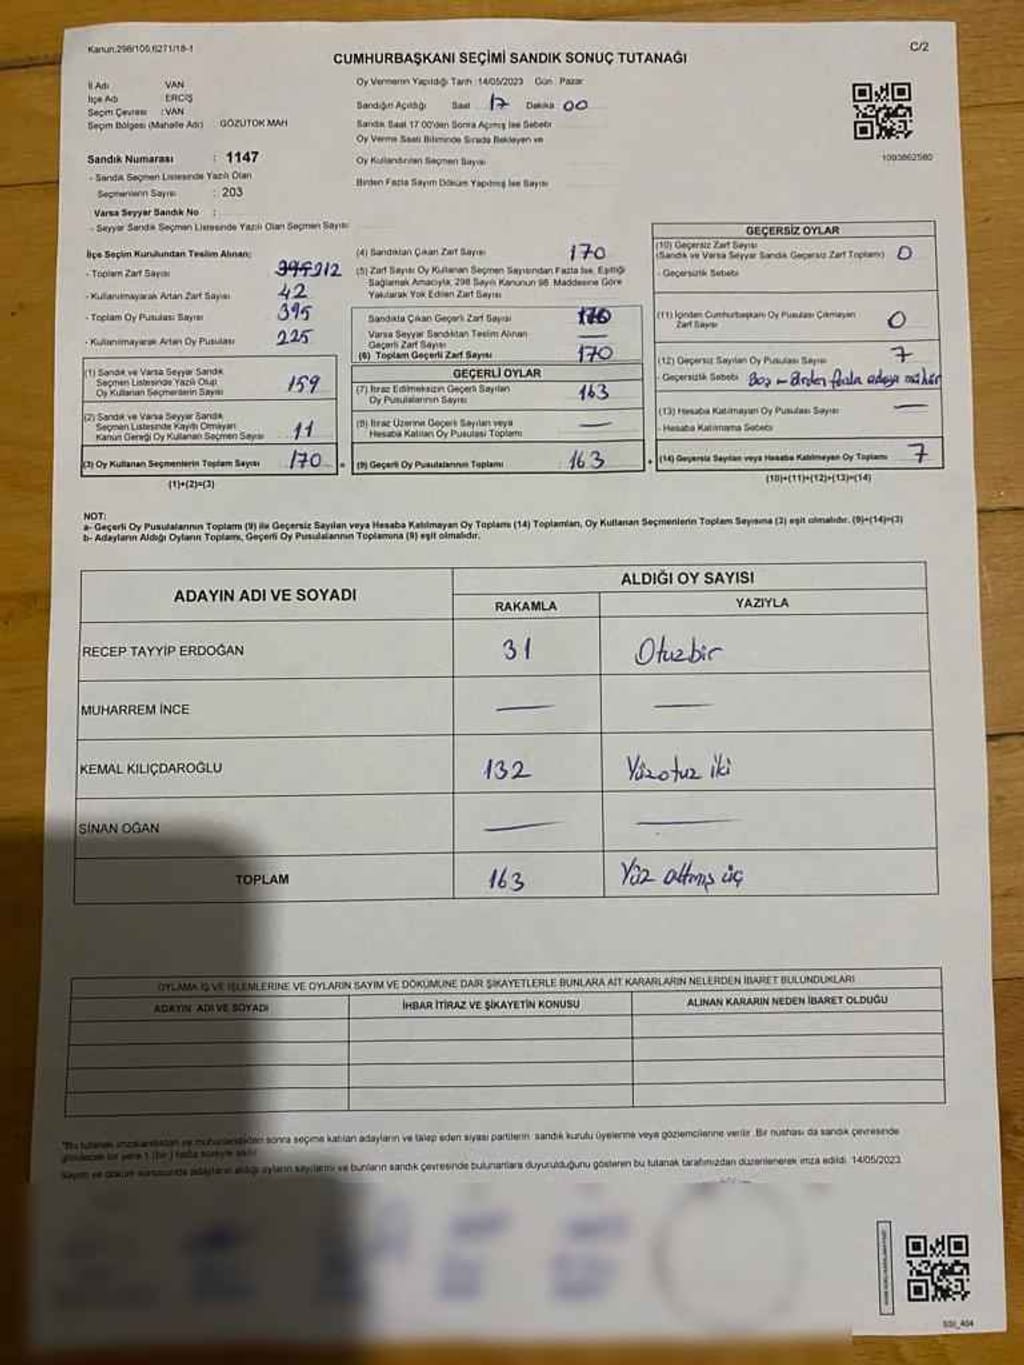 Kanun.298/105,6271/18-1
C/2
CUMHURBAŞKANI SEÇİMİ SANDIK SONUÇ TUTANAĞI
İl Adı VAN
İlçe Adı ERCİŞ
Seçim Çevresi : VAN
Seçim Bölgesi (Mahalle Adı) : GÖZÜTOK MAH
Sandık Numarası : 1147
- Sandık Seçmen Listesinde Yazılı Olan
Seçmenlerin Sayısı : 203
Varsa Seyyar Sandık No :
- Seyyar Sandık Seçmen Listesinde Yazılı Olan Seçmen Sayısı
Oy Vermenin Yapıldığı Tarih : 14/05/2023 Gün : Pazar
Sandığın Açıldığı Saat 17 Dakika 00
Sandık Saat 17:00'den Sonra Açılmış İse Sebebi
Oy Verme Saati Bitiminde Sırada Bekleyen ve
Oy Kullandırılan Seçmen Sayısı
Birden Fazla Sayım Döküm Yapılmış İse Sayısı
1003862580
İlçe Seçim Kurulundan Teslim Alınan;
- Toplam Zarf Sayısı 212
- Kullanılmayarak Artan Zarf Sayısı 42
- Toplam Oy Pusulası Sayısı 395
- Kullanılmayarak Artan Oy Pusulası 225
(1) Sandık ve Varsa Seyyar Sandık
Seçmen Listesinde Yazılı Olup
Oy Kullanan Seçmenlerin Sayısı 159
(2) Sandık ve Varsa Seyyar Sandık
Seçmen Listesinde Kayıtlı Olmayan
Kanun Gereği Oy Kullanan Seçmen Sayısı 11
(3) Oy Kullanan Seçmenlerin Toplam Sayısı 170 =
(1)+(2)=(3)
(4) Sandıktan Çıkan Zarf Sayısı 170
(5) Zarf Sayısı Oy Kullanan Seçmen Sayısından Fazla İse, Eşitliği
Sağlamak Amacıyla, 298 Sayılı Kanunun 98. Maddesine Göre
Yakılarak Yok Edilen Zarf Sayısı
Sandıkta Çıkan Geçerli Zarf Sayısı 170
Varsa Seyyar Sandıktan Teslim Alınan
Geçerli Zarf Sayısı —
(6) Toplam Geçerli Zarf Sayısı 170
GEÇERLİ OYLAR
(7) İtiraz Edilmeksizin Geçerli Sayılan
Oy Pusulalarının Sayısı 163
(8) İtiraz Üzerine Geçerli Sayılan veya
Hesaba Katılan Oy Pusulası Toplamı —
(9) Geçerli Oy Pusulalarının Toplamı 163 +
GEÇERSİZ OYLAR
(10) Geçersiz Zarf Sayısı
(Sandık ve Varsa Seyyar Sandık Geçersiz Zarf Toplamı) 0
- Geçersizlik Sebebi
(11) İçinden Cumhurbaşkanı Oy Pusulası Çıkmayan
Zarf Sayısı 0
(12) Geçersiz Sayılan Oy Pusulası Sayısı 7
- Geçersizlik Sebebi Boş - Birden fazla adaya mühür
(13) Hesaba Katılmayan Oy Pusulası Sayısı —
- Hesaba Katılmama Sebebi
(14) Geçersiz Sayılan veya Hesaba Katılmayan Oy Toplamı 7
(10)+(11)+(12)+(13)=(14)
NOT:
a- Geçerli Oy Pusulalarının Toplamı (9) ile Geçersiz Sayılan veya Hesaba Katılmayan Oy Toplamı (14) Toplamları, Oy Kullanan Seçmenlerin Toplam Sayısına (3) eşit olmalıdır. (9)+(14)=(3)
b- Adayların Aldığı Oyların Toplamı, Geçerli Oy Pusulalarının Toplamına (9) eşit olmalıdır.
ADAYIN ADI VE SOYADI
ALDIĞI OY SAYISI
RAKAMLA YAZIYLA
RECEP TAYYİP ERDOĞAN 31 Otuzbir
MUHARREM İNCE — —
KEMAL KILIÇDAROĞLU 132 Yüzotuz iki
SİNAN OĞAN — —
TOPLAM 163 Yüz altmış üç
OYLAMA İŞ VE İŞLEMLERİNE VE OYLARIN SAYIM VE DÖKÜMÜNE DAİR ŞİKAYETLERLE BUNLARA AİT KARARLARIN NELERDEN İBARET BULUNDUKLARI
ADAYIN ADI VE SOYADI İHBAR İTİRAZ VE ŞİKAYETİN KONUSU ALINAN KARARIN NEDEN İBARET OLDUĞU
*Bu tutanak imzalandıktan ve mühürlendikten sonra seçime katılan adayların ve talep eden siyasi partilerin sandık kurulu üyelerine veya gözlemcilerine verilir. Bir nüshası da sandık çevresinde
görülecek bir yere 1 (bir) hafta süreyle asılır.
Sayım ve döküm sonucunda adayların aldığı oyların sayılarını ve bunların sandık çevresinde bulunanlara duyurulduğunu gösteren bu tutanak tarafımızdan düzenlenerek imza edildi. 14/05/2023